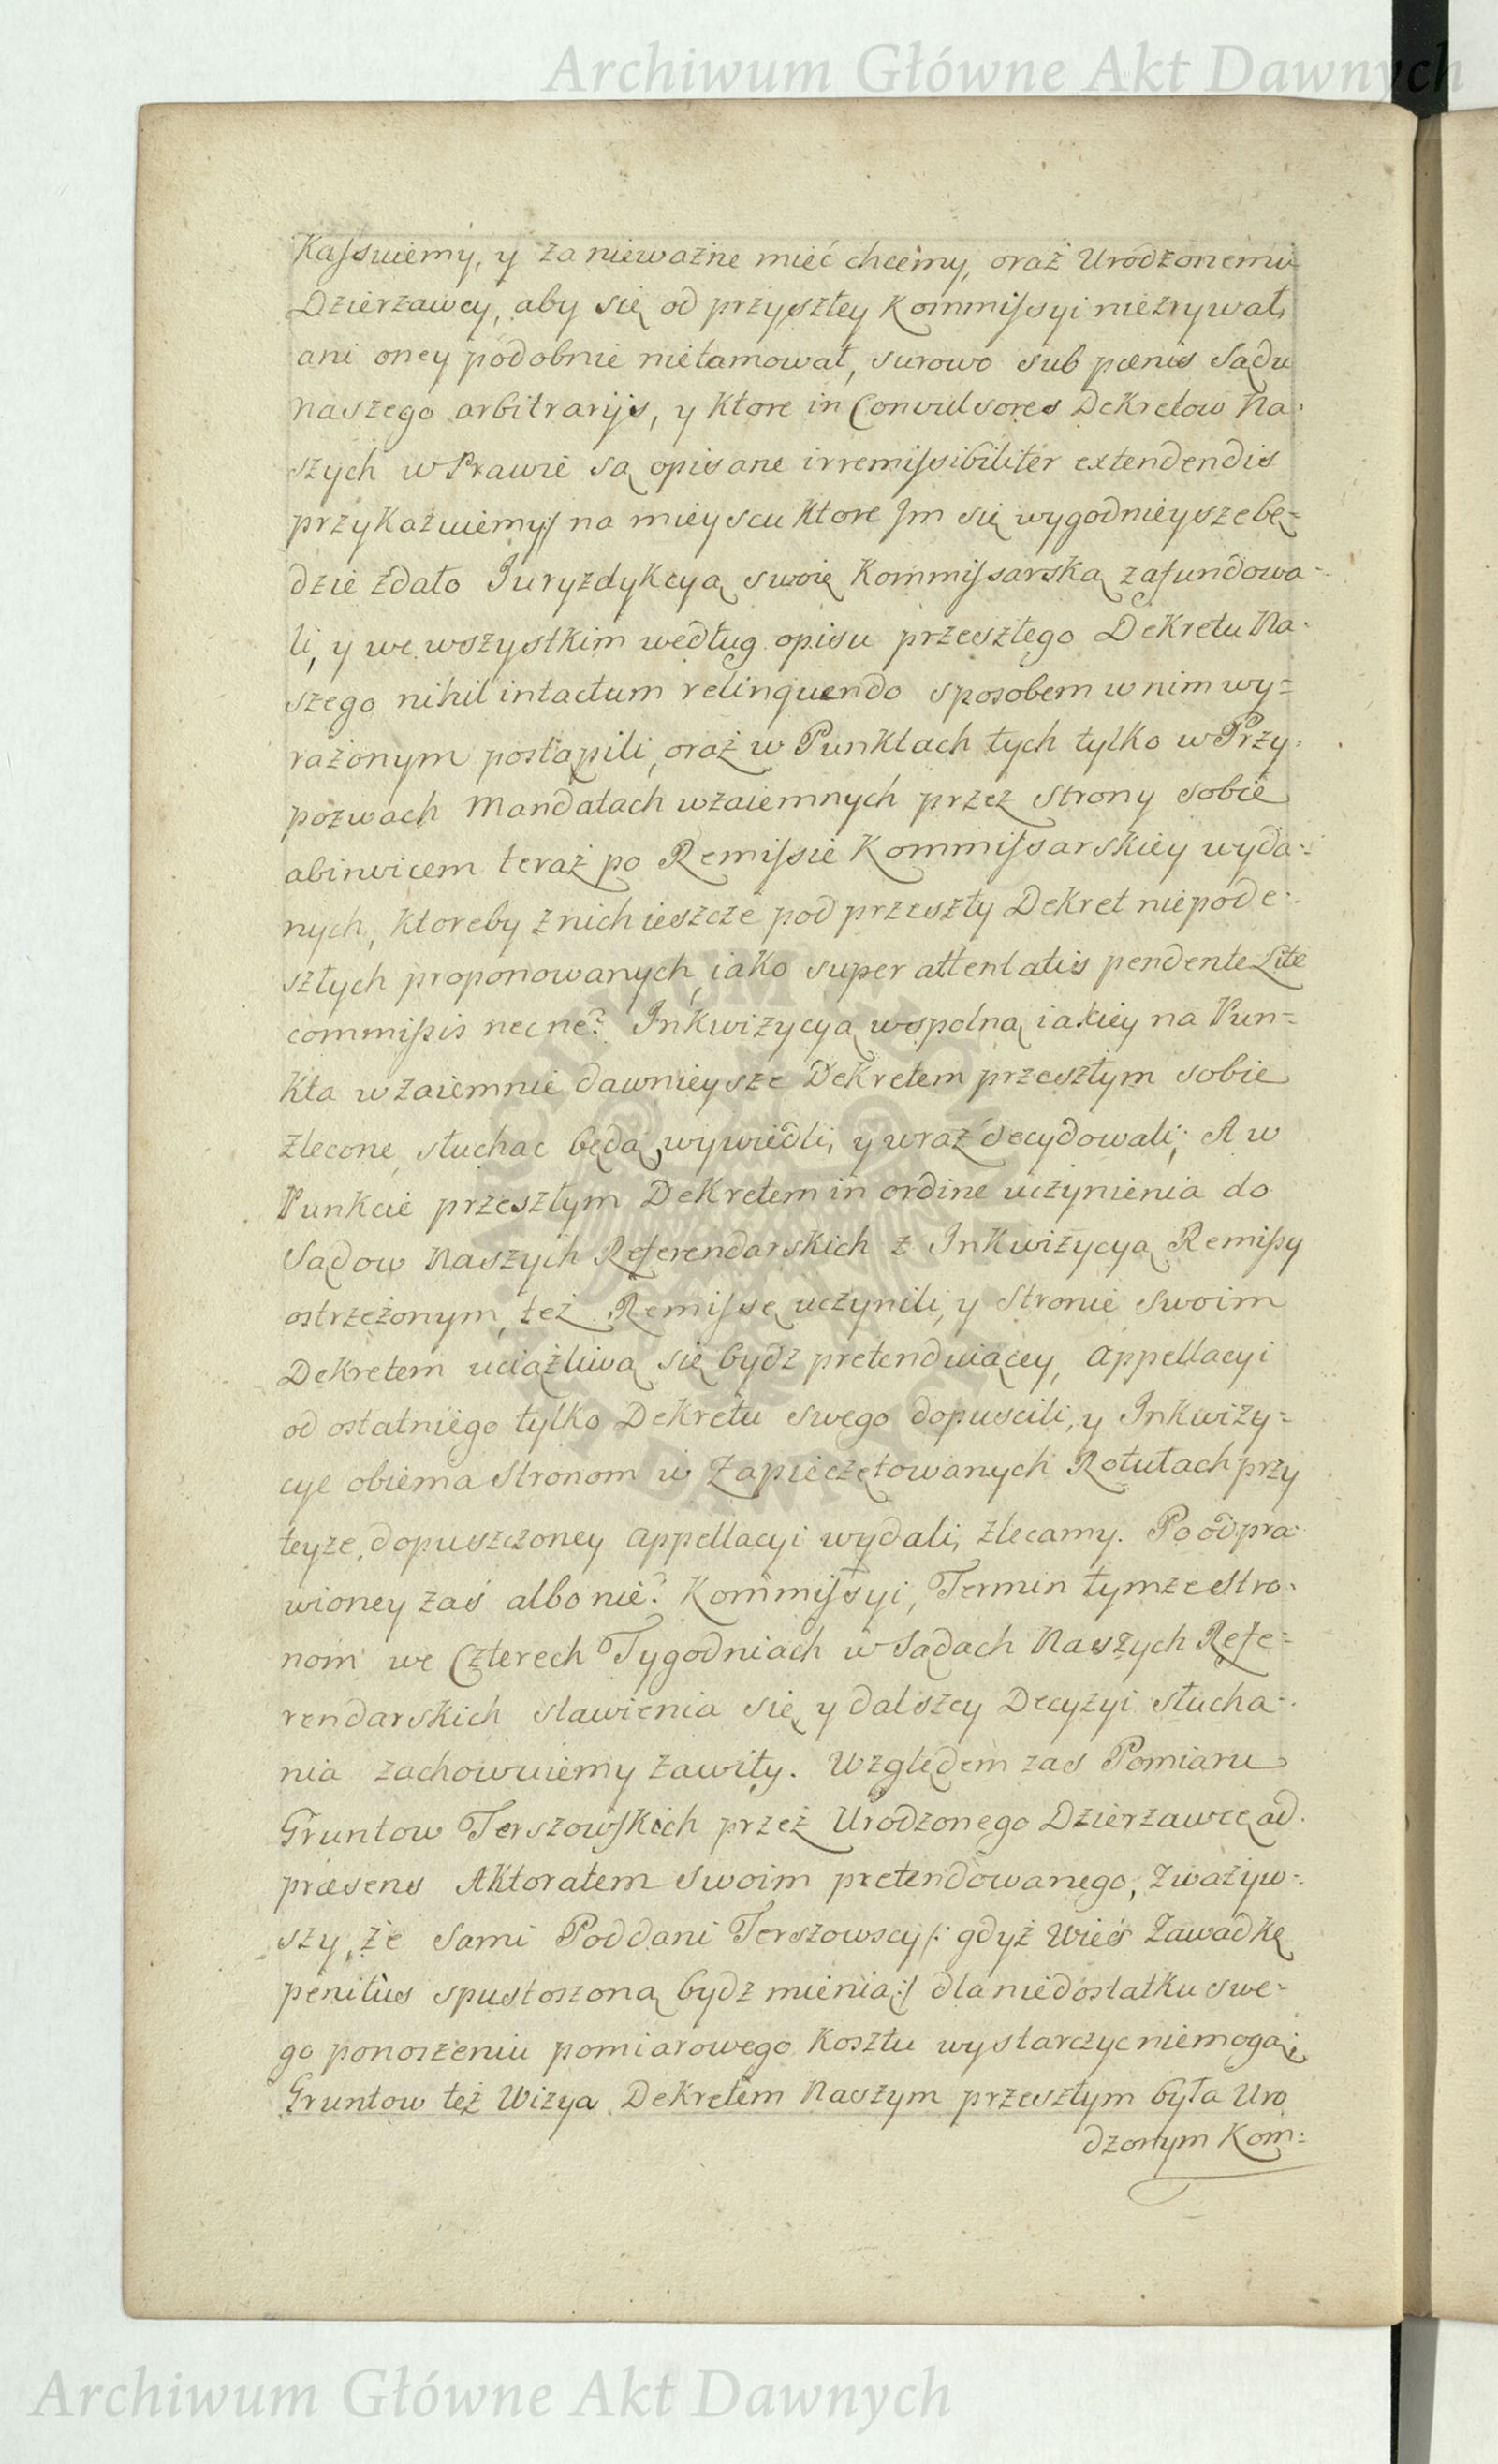 Archiwum Główne Akt Dawnych
Kassuiemy, y za nieważne mieć chcemy, oraz Urodzonemu
Dzierzawcy, aby się od przyszłey Kommissyi niezrywał,
ani oney podobnie nietamował, surowo sub pænis Sądu
naszego arbitrarijs, y ktore in Convulsores Dekretow Na:
szych w Prawie są opisane irremissibiliter extendendis
przykazuiemy:/ na mieyscu ktore Jm się wygodnieysze bę=
dzie zdało Juryzdykcyą swoię Kommissarską zafundowa=
li, y we wszystkim według opisu przeszłego Dekretu Na:
szego nihil intactum relinquendo sposobem w nim wy=
rażonym postąpili, oraz w Punktach tych tylko w Przy:
pozwach Mandatach wzaiemnych przez Strony sobie
abinvicem teraz po Remissie Kommissarskiey wyda=
nych, ktoreby z nich ieszcze pod przeszły Dekret niepode:
szłych proponowanych, iako super attentatis pendente Lite
commissis necne? Inkwizycyą wspolną iakiey na Pun=
kta wzaiemnie dawnieysze Dekretem przeszłym sobie
zlecone słuchac będą, wywiedli, y wraz decydowali; A w
Punkcie przeszłym Dekretem in ordine uczynienia do
Sądow Naszych Referendarskich z Inkwizycyą Remissy
ostrzeżonym, też Remissę uczynili, y Stronie Swoim
Dekretem uciążliwą się bydz pretenduiącey, Appellacyi
od ostatniego tylko Dekretu swego dopuscili, y Inkwizy=
cye obiema Stronom w Zapieczętowanych Rotułach przy
teyże, dopuszczoney Appellacyi wydali, zlecamy. Po odpra
wioney zaś albo nie? Kommissyi, Termin tymże Stro:
nom we Czterech Tygodniach w Sądach Naszych Refe=
rendarskich stawienia się, y dalszey Decyzyi słucha=
nia zachowuiemy zawity. Względem zas Pomiaru
Gruntow Terszowskich przez Urodzonego Dzierzawcę ad
præsens Aktoratem Swoim pretendowanego, Zważyw=
szy, że Sami Poddani Terszowscy /: gdyż Wieś Zawadkę
penitus spustoszoną bydz mienią :/ dla niedostatku swe=
go ponoszeniu pomiarowego Kosztu wystarczyc niemogą;
Gruntow też Wizya Dekretem Naszym przeszłym była Uro
dzonym Kom:
Archiwum Główne Akt Dawnych